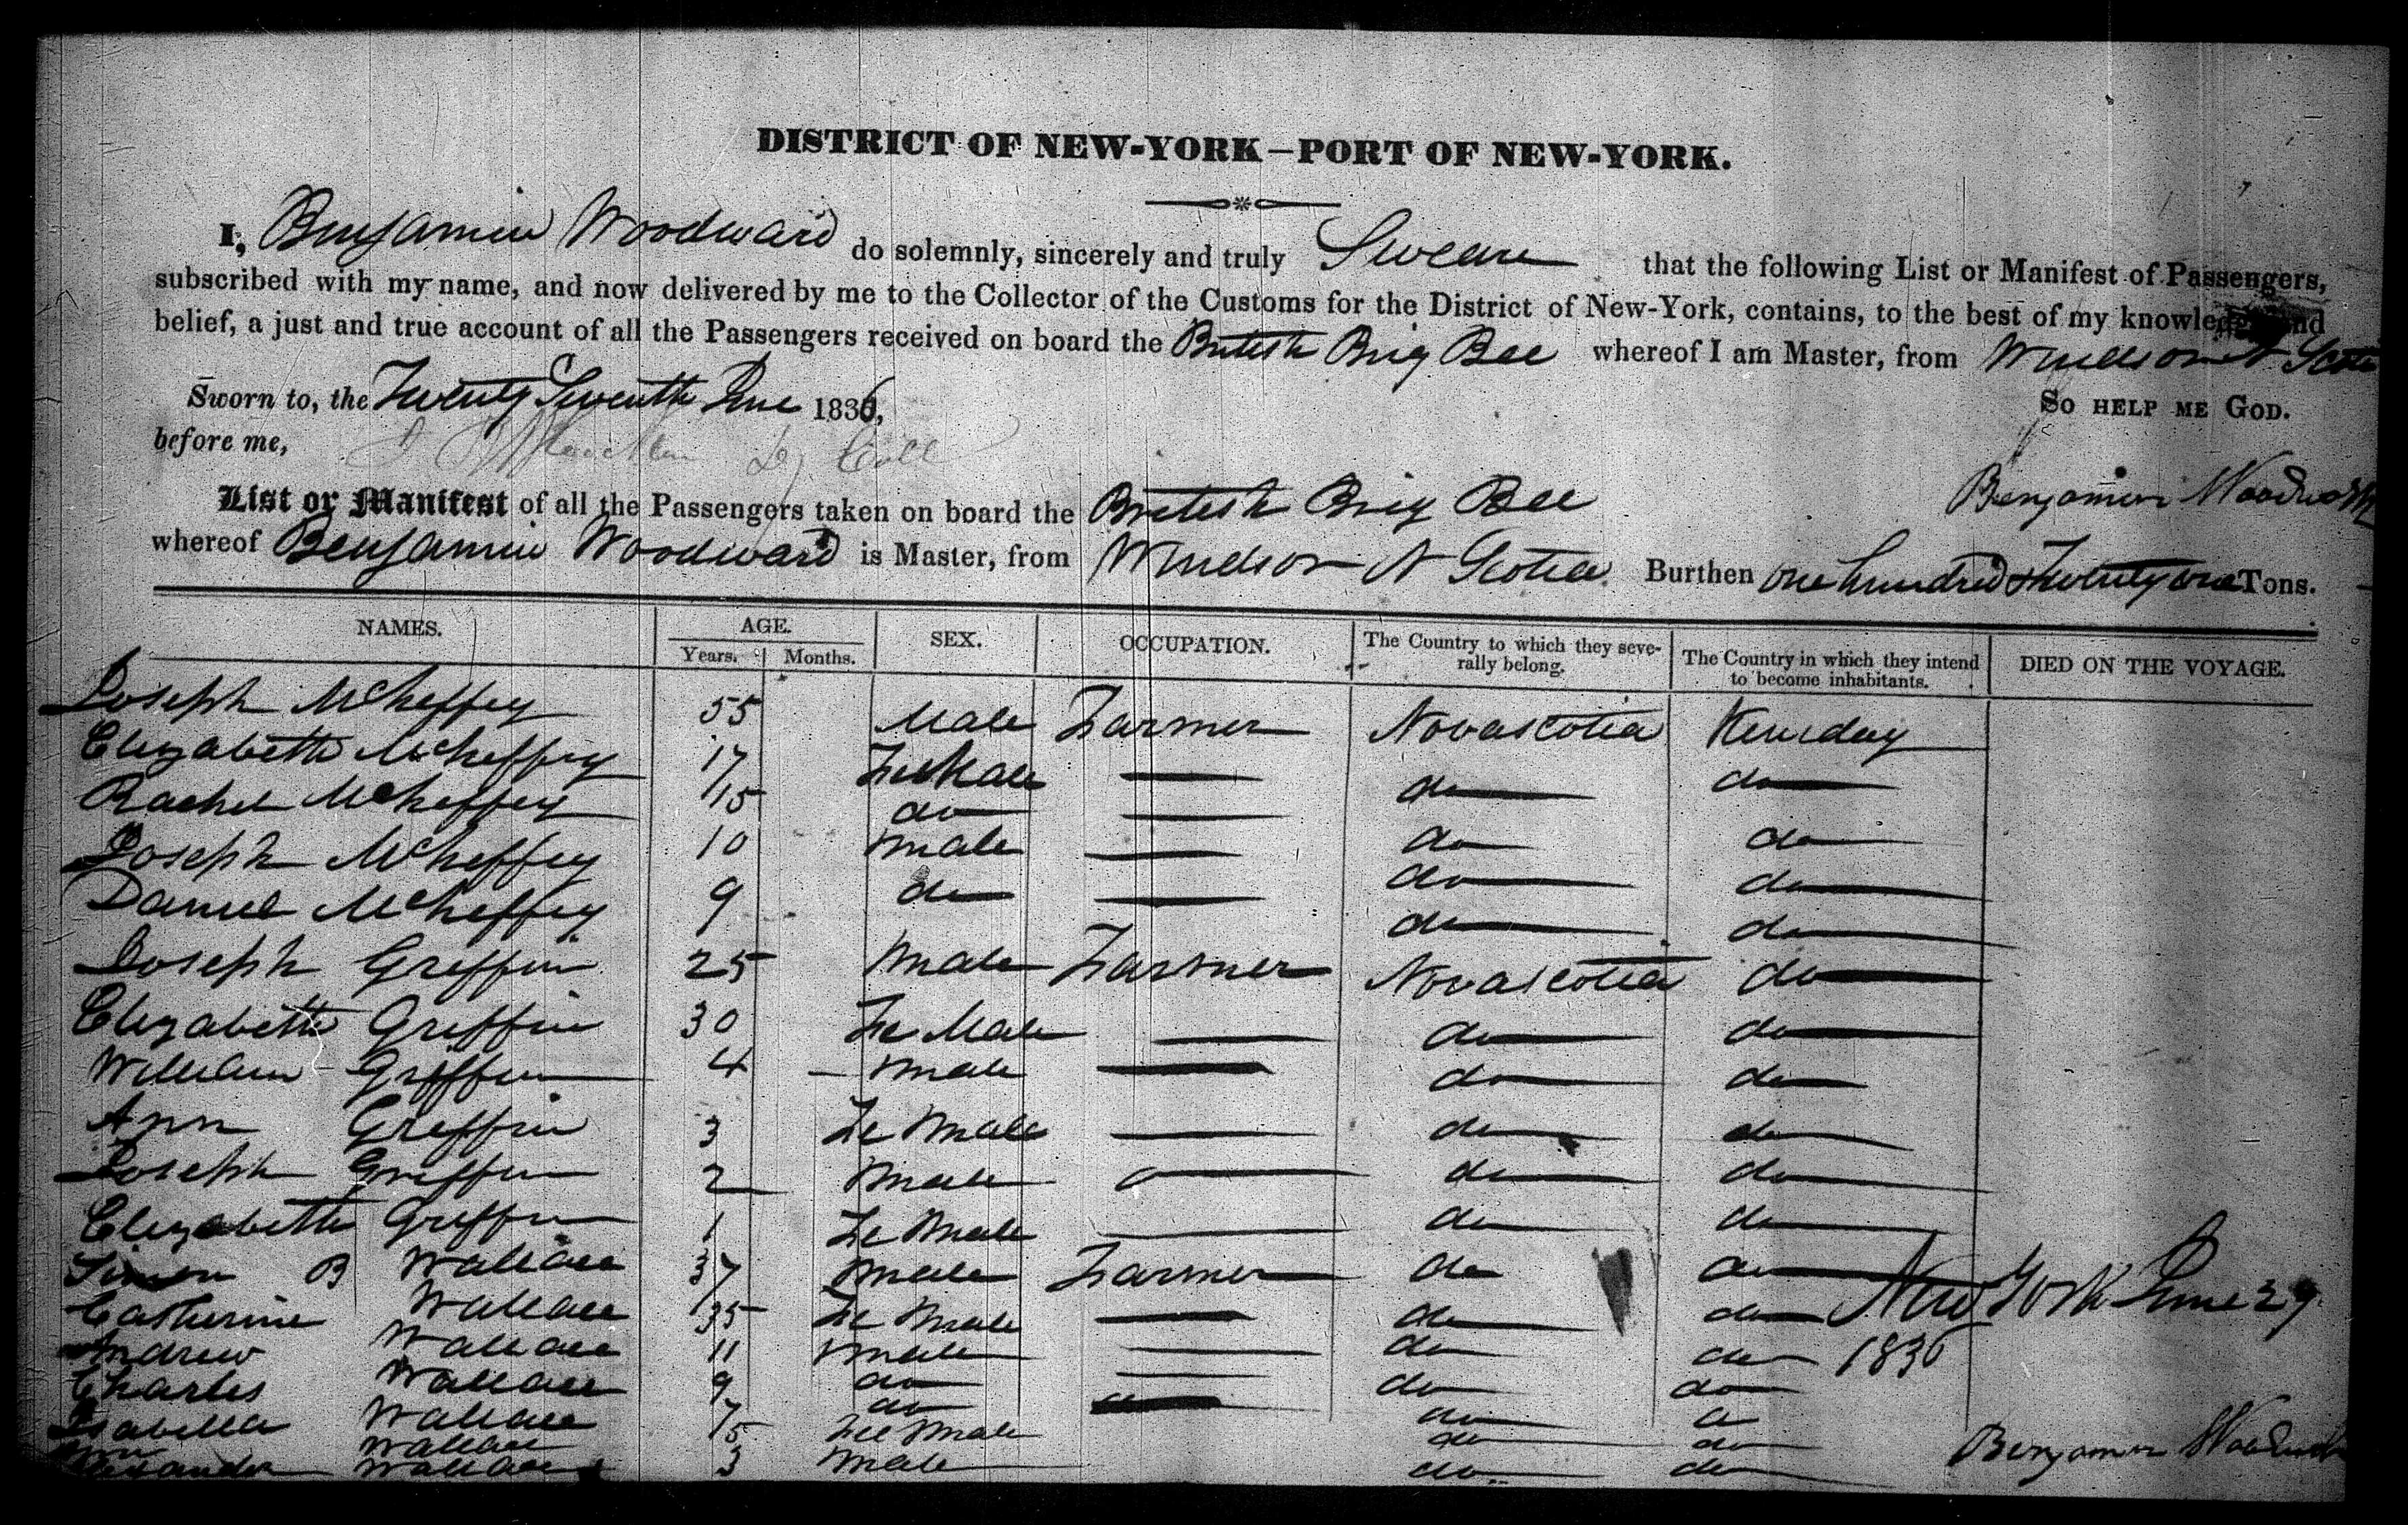 DISTRICT OF NEW-YORK—PORT OF NEW-YORK.
I, Benjamin Woodward do solemnly, sincerely and truly Swear that the following List or Manifest of Passengers,
subscribed with my name, and now delivered by me to the Collector of the Customs for the District of New-York, contains, to the best of my knowledge and
belief, a just and true account of all the Passengers received on board the British Brig Bee whereof I am Master, from Windsor N. Scotia
Sworn to, the Twenty Seventh June 1836, SO HELP ME GOD.
before me,
Benjamin Woodworth
List or Manifest of all the Passengers taken on board the British Brig Bee
whereof Benjamin Woodward is Master, from Windsor N Scotia Burthen one hundred & twenty one Tons.
NAMES. AGE. Years. Months. SEX. OCCUPATION. The Country to which they severally belong. The Country in which they intend to become inhabitants. DIED ON THE VOYAGE.
Joseph McHeffey 55 Male Farmer Novascotia
Elizabeth McHeffey 17 FeMale do do
Rachel McHeffey 15 do do do
Joseph McHeffey 10 male do do
Daniel McHeffey 9 do do do
Joseph Griffin 25 Male Farmer Novascotia do
Elizabeth Griffin 30 Fe Male do do
William Griffin 4 male do do
Ann Griffin 3 Fe male do do
Joseph Griffin 2 male do do
Elizabeth Griffin 1 Fe male do do
B Wallace 37 male Farmer do do
Catherine Wallace 35 Fe male do do New York June 27
Andrew Wallace 11 male do do 1836
Charles Wallace 9 do do do
Isabella Wallace 7 do do
Ann Wallace 5 Fe male do do Benjamin Woodworth
Wallace 3 male do do